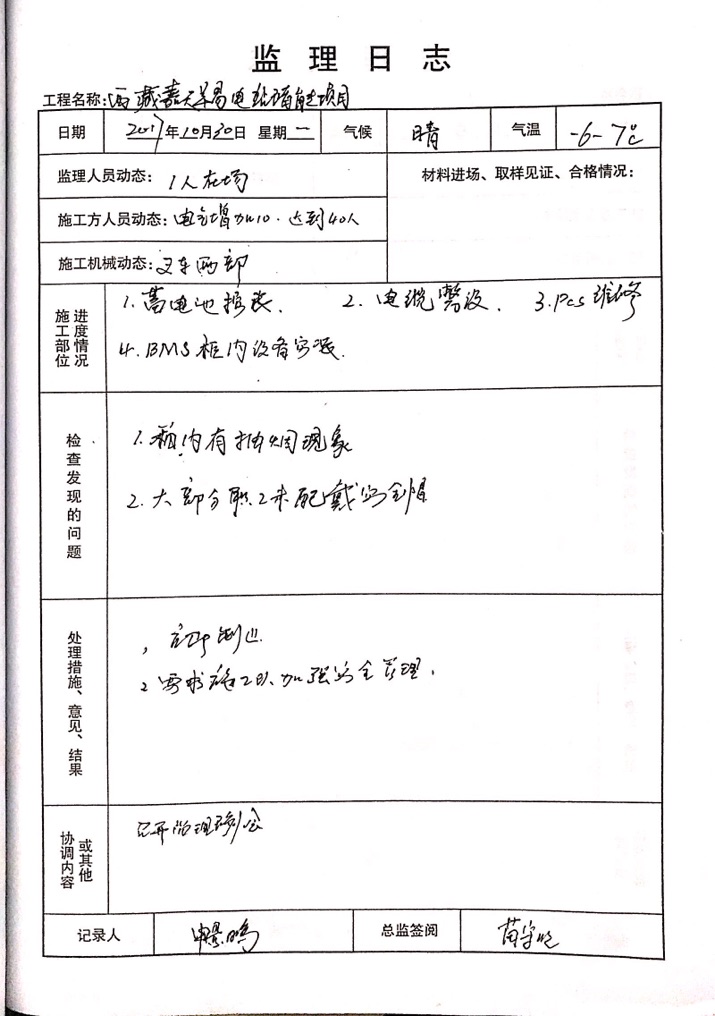 监理日志
工程名称：西藏嘉天羊易电站储能项目
日期 2017年10月30日 星期一 气候 晴 气温 -6-7℃
监理人员动态：1人在场 材料进场、取样见证、合格情况：
施工方人员动态：电气增加10. 达到40人
施工机械动态：叉车两部
施工部位进度情况
1. 蓄电池接装. 2. 电缆敷设. 3. PCS维修
4. BMS柜内设备安装.
检查发现的问题
1. 箱内有抽烟现象
2. 大部分职工未配戴安全帽
处理措施、意见、结果
1 立即制止
2 要求施工队加强安全管理.
协调内容或其他
召开监理例会
记录人 总监签阅